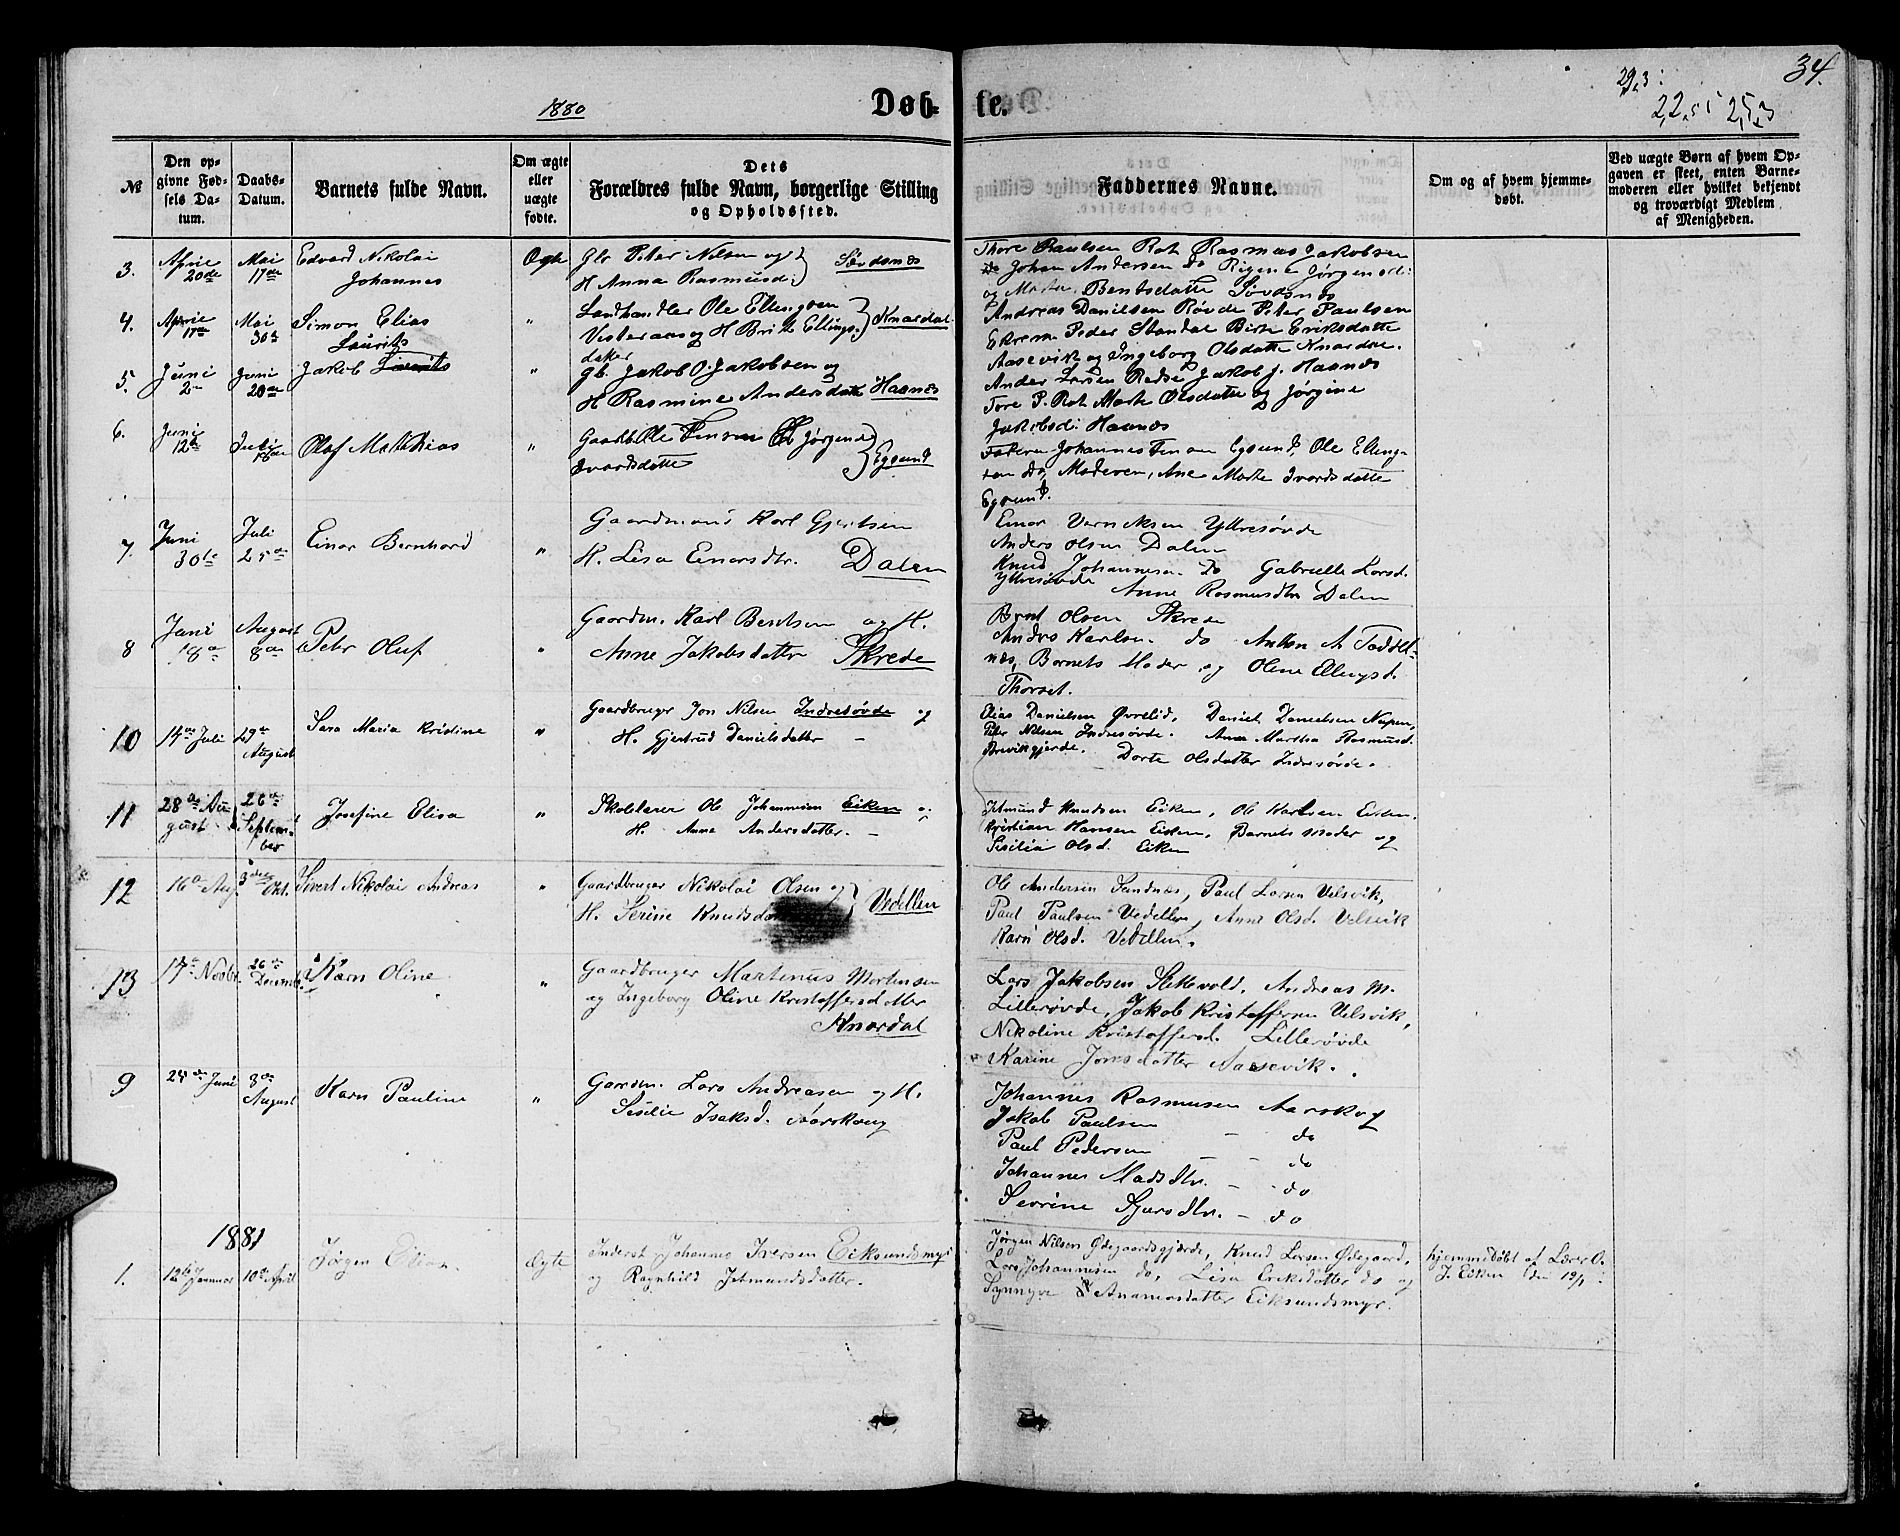 34.
29,3:
2,2.55 25,3
1880
Døb-
te.
№
Den op-
givne Fød-
sels Da-
tum.
Daabs-
Datum.
Barnets fulde Navn.
Om ægte
eller
uægte
fødte.
Dets
Forældres fulde Navn, borgerlige Stilling
og Opholdssted.
Faddernes Navne.
Om og af hvem hjemme-
døbt.
Ved uægte Børn af hvem Op-
gaven er skeet, enten Barne-
moderen eller hvilket bekjendt
og troværdigt Medlem
af Menigheden.
3.
20de
Mai
17de
Edvard Nikolai
Johannes
Gbr Peter Nilsen og
H Anna Rasmusd:
Søvdsnes
Thore Paulsen Rot Rasmus Jakobsen
do Johan Andersen do Jørgensd:
og Marte Bentsdatte Søvdsnes
4.
17de
Mai
30te
Simon Elias
Laurits
"
Landhandler Ole Ellingsen
Vesteraas og H Brite Ellings-
datter
Knardal
Andreas Danielsen Røvde Peter Paulsen
Peder Standal Birte Eriksdatte
Aasevik og Ingeborg Olsdatte Knardal.
5.
Juni
2en
Juni
20de
Jakob Laurits
"
Gb. Jakob O. Jakobsen og
H Rasmine Andersdatte Haanes
Ander Larsen Jakob J. Haanes
Tore P. Rot Marte Olsdatte og Jørgine
Jakobsd: Haanes
6.
Juni
12te
Juli
18de
Olaf Matthias
"
Jørgine
Ivarsdatte
Egsund
Faderen Johannes Egsund, Ole Elling-
sen do, Moderen, Ane Marte Ivarsdatte
Egsund.
7.
Juni
30te
Juli
25de
Einar Bernhard
"
Gaardmand Karl Gjertsen
H. Lisa Einarsdtr. Dalen
Einar Yttresøvde
Anders Olsen Dalen
Knud Johannesen do Gabrielle Larsd.
Yttresøvde Anne Rasmusdtr Dalen
8
Juni
18de
August
8de
Peter Oluf
"
Gaardm. Karl Bentsen og H.
Anne Jakobsdatter Skrede
Bernt Olsen Skrede
Andrs Karlsen do Anton A
Barnets Moder og Olene Ellingsd.
Thorset.
10
14de Juli
29de
August
Sara Maria Kristine
"
Gaardbruger Jon Nilsen Indresøvde og
H. Gjertrud Danielsdatter -
Elias Danielsen Øvrelid, Daniel Danielsen Nupen,
Peter Nilsen Indresøvde. Anne Martha Rasmusd.
Brevikgjerde. Dorte Olsdatter Indresøvde.
11
28de Au-
gust
26de
Septem-
ber
Josefine Elisa
"
Skolelærer Ole Johannesen Eiken og
H. Anna Andersdatter. -
Jetmund Knudsen Eiken, Ole Karlsen Eiken.
Kristian Hansen Eiken, Barnets Moder og
Sesilia Olsd. Eiken
12
16de Aug.
3die Okt.
Sivert Nikolai Andreas
"
Gaardbruger Nikolai Olsen og
H. Serine Knudsda
Vedellen
Ole Andersen Sandnes, Paul Larsen Velsvik,
Paul Paulsen Vedellen, Anne Olsd. Velsvik
Karn Olsd. Vedellen.
13
17de Novbr.
26de
Decemb.
Karn Oline
"
Gaardbruger Martinus Mortensen
og Ingeborg Oline Kristoffersdatter
Knardal
Lars Jakobsen Slikevold, Andreas M.
Lillerøvde, Jakob Kristoffersen Velsvik,
Nikoline Kristoffersd. Lillerøvde
Karine Jonsdatter Aasevik.
9
24de Juni
8de
August
Karn Pauline
"
Gaardm. Lars Andreasen og H.
Seselie Isaksd. Aarskoug
Johannes Rasmusen Aarskog
Jakob Paulsen - do
Paul Pedersen - - do
Johannes Madsdtr. - do
Sevrine Sjursdtr. - do
1881
1.
12te Januar
10de April
Jørgen Elias.
Ægte
Inderst Johannes Iversen Eiksundsmyr
og Ragnhild Jetmundsdatter.
Jørgen Nilsen Ødegaardsgjærde, Knud Larsen Ødegaard,
Lars Johannesen do, Lisa Eriksdatter do og
Synnøve Ananiasdatter Eiksundsmyr.
hjemmedøbt af Lærer O.
J. Eiken den 19/1